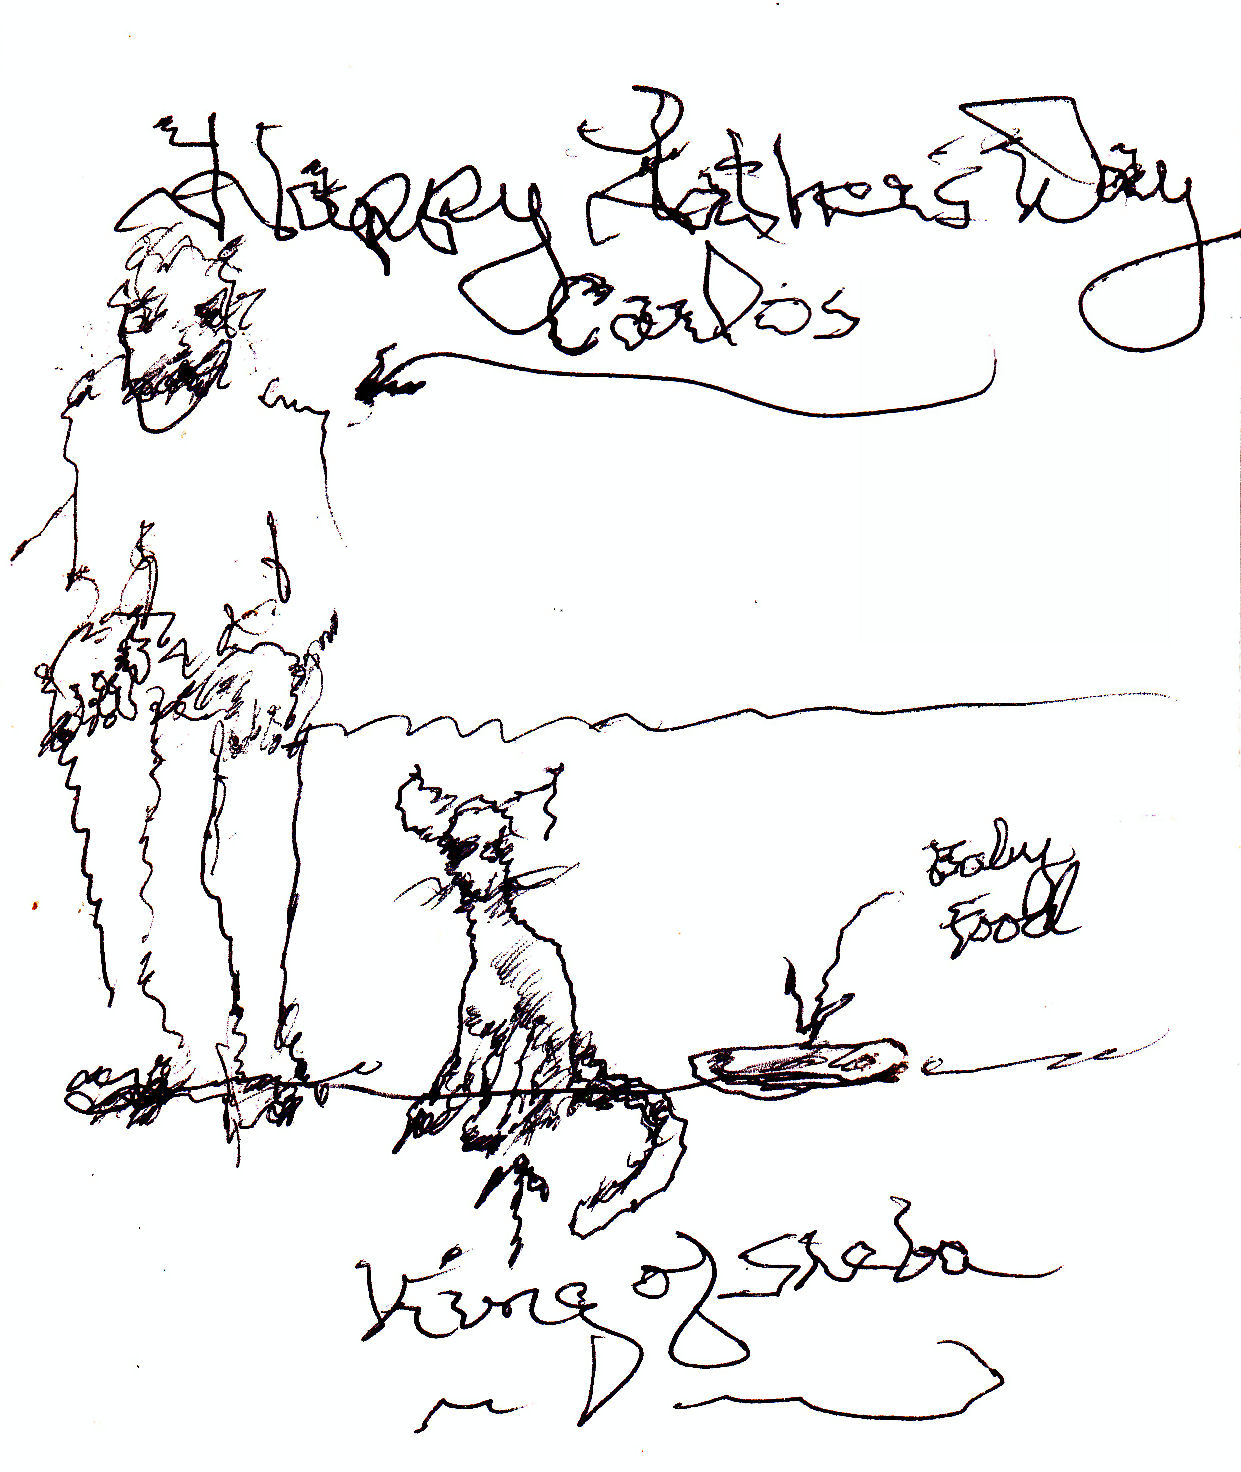 Happy Fathers Day
Carlos
Baby
Food
King of Sheba